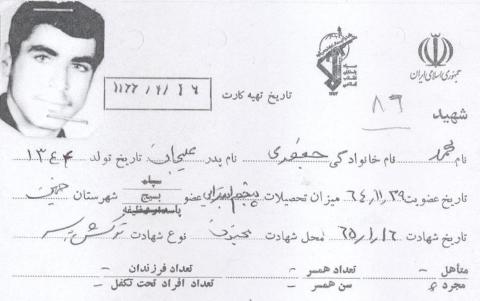 جمهوری اسلامی ایران
تاریخ تهیه کارت ۱۳۶۶/۹/۲۶
شهید ۸۹
نام محمد نام خانوادگی جعفری نام پدر علیجان تاریخ تولد ۱۳۴۴
تاریخ عضویت ۶۴/۱۱/۲۹ میزان تحصیلات پنجم ابتدایی عضو سپاه بسیج پاسدار وظیفه شهرستان خمین
تاریخ شهادت ۶۵/۱/۱۶ محل شهادت مجنون نوع شهادت ترکش به سر
متأهل - تعداد همسر - تعداد فرزندان -
مجرد سن همسر - تعداد افراد تحت تکفل -